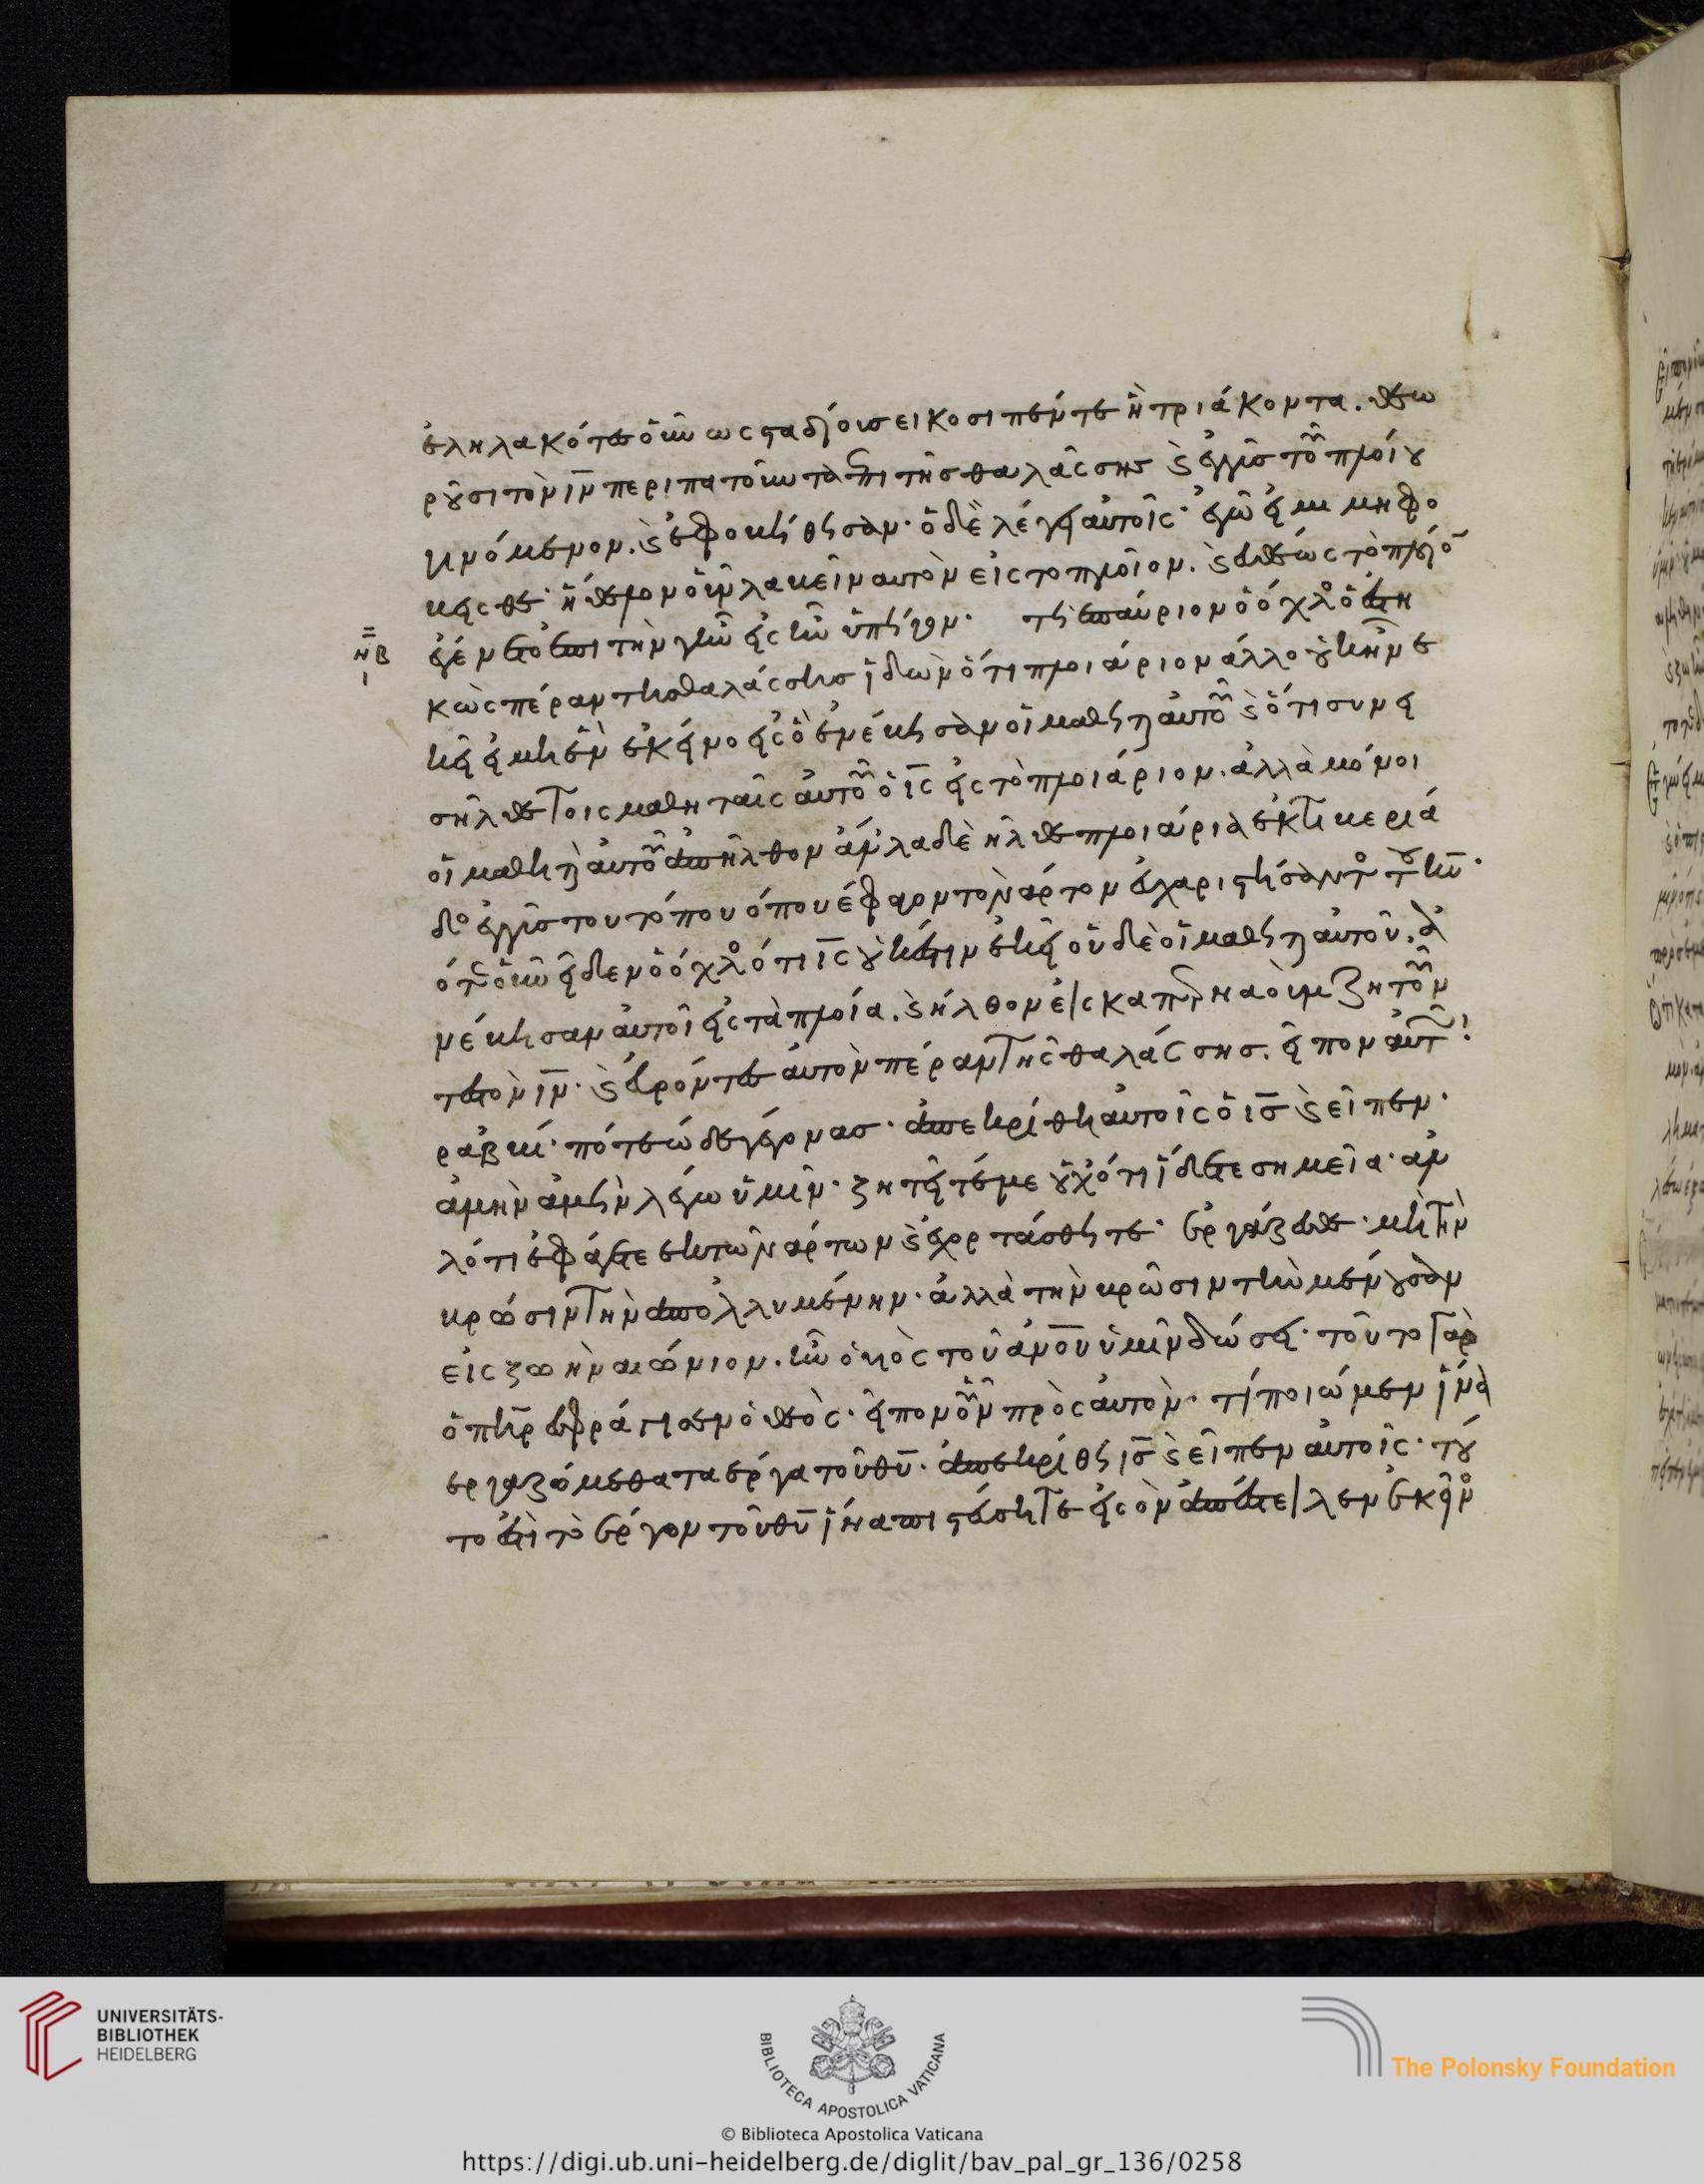 ἐληλακότες οὖν ὡς σταδίους εἰκοσιπέντε ἢ τριάκοντα. θεω
ροῦσι τὸν ιν̅ περιπατοῦντα ἐπι τῆς θαλάσσης ϗ ἐγγὺς τοῦ πλοίου
γινόμενον. ϗ ἐφοβήθησαν· ὁ δὲ λέγει αὐτοῖς· ἐγώ εἰμι μὴ φο
βεῖσθε· ἤθελον οὖν λαβεῖν αὐτὸν εἰς το πλοῖον. ϗ εὐθέως τὸ πλοῖον
νβ
ι
ἐγένετο ἐπι τὴν γῆν εἰς ἣν ὑπῆγον· τῇ ἐπαύριον ὁ ὄχλος ὁ ἑστη
κὼς πέραν τῆς θαλάσσης ἰδὼν ὅτι πλοιάριον ἄλλο οὐκ ἦν ἐ
κεῖ εἰ μὴ ἓν ἐκεῖνο εἰς ὃ ἐνέβησαν οἱ μαθηταὶ αὐτοῦ ϗ ὅτι συνει
σῆλθε τοις μαθηταῖς αὐτοῦ ὁ ις̅ εἰς τὸ πλοιάριον. ἀλλὰ μόνοι
οἱ μαθηταὶ αὐτοῦ ἀπῆλθον ἄλλα δὲ ἦλθε πλοιάρια ἐκ τιβεριά
δος ἐγγὺς του τόπου ὅπου ἔφαγον τὸν ἄρτον εὐχαριστήσαντος τοῦ κυ̅·
ὅτε οὖν εἶδεν ὁ ὄχλος ὅτι ις̅ οὐκ ἔστιν ἐκεῖ οὐδὲ οἱ μαθηταὶ αὐτοῦ. ἐ
νέβησαν αὐτοὶ εἰς τὰ πλοία. ϗ ἦλθον εἰς καπερναοὺμ ζητοῦν
τες τὸν ιν̅. ϗ εὑρόντες αὐτὸν πέραν τῆς θαλάσσης. εἶπον αὐτῷ·
ραββί· πότε ὧδε γέγονας· ἀπεκρίθη αὐτοῖς ὁ ις̅ ϗ εἶπεν·
ἀμὴν ἀμὴν λέγω ὑμῖν· ζητεῖτέ με οὐχ ὅτι ἴδετε σημεῖα· ἀλ
λ ὅτι ἐφάγετε ἐκ τῶν ἄρτων ϗ ἐχορτάσθητε· ἐργάζεσθε· μὴ τὴν
βρῶσιν τὴν ἀπολλυμένην. ἀλλὰ τὴν βρῶσιν τὴν μένουσαν
εἰς ζωὴν αἰώνιον. ἣν ὁ υἱὸς τοῦ ἀνου̅ ὑμῖν δώσει· τοῦτο γὰρ
ὁ πηρ̅ ἐσφράγισεν ὁ θεὸς· εἶπον οὖν πρὸς αὐτὸν· τί ποιώμεν ἵνα
ἐργαζώμεθα τα ἔργα τοῦ θυ̅. ἀπεκρίθη ις̅ ϗ εἶπεν αὐτοῖς· τού
το ἐστὶ τὸ ἔργον τοῦ θυ̅ ἵνα πιστεύσητε εἰς ὃν ἀπέστειλεν ἐκεῖνος
UNIVERSITÄTS-
BIBLIOTHEK
HEIDELBERG
BIBLIOTECA APOSTOLICA VATICANA
The Polonsky Foundation
© Biblioteca Apostolica Vaticana
https://digi.ub.uni-heidelberg.de/diglit/bav_pal_gr_136/0258